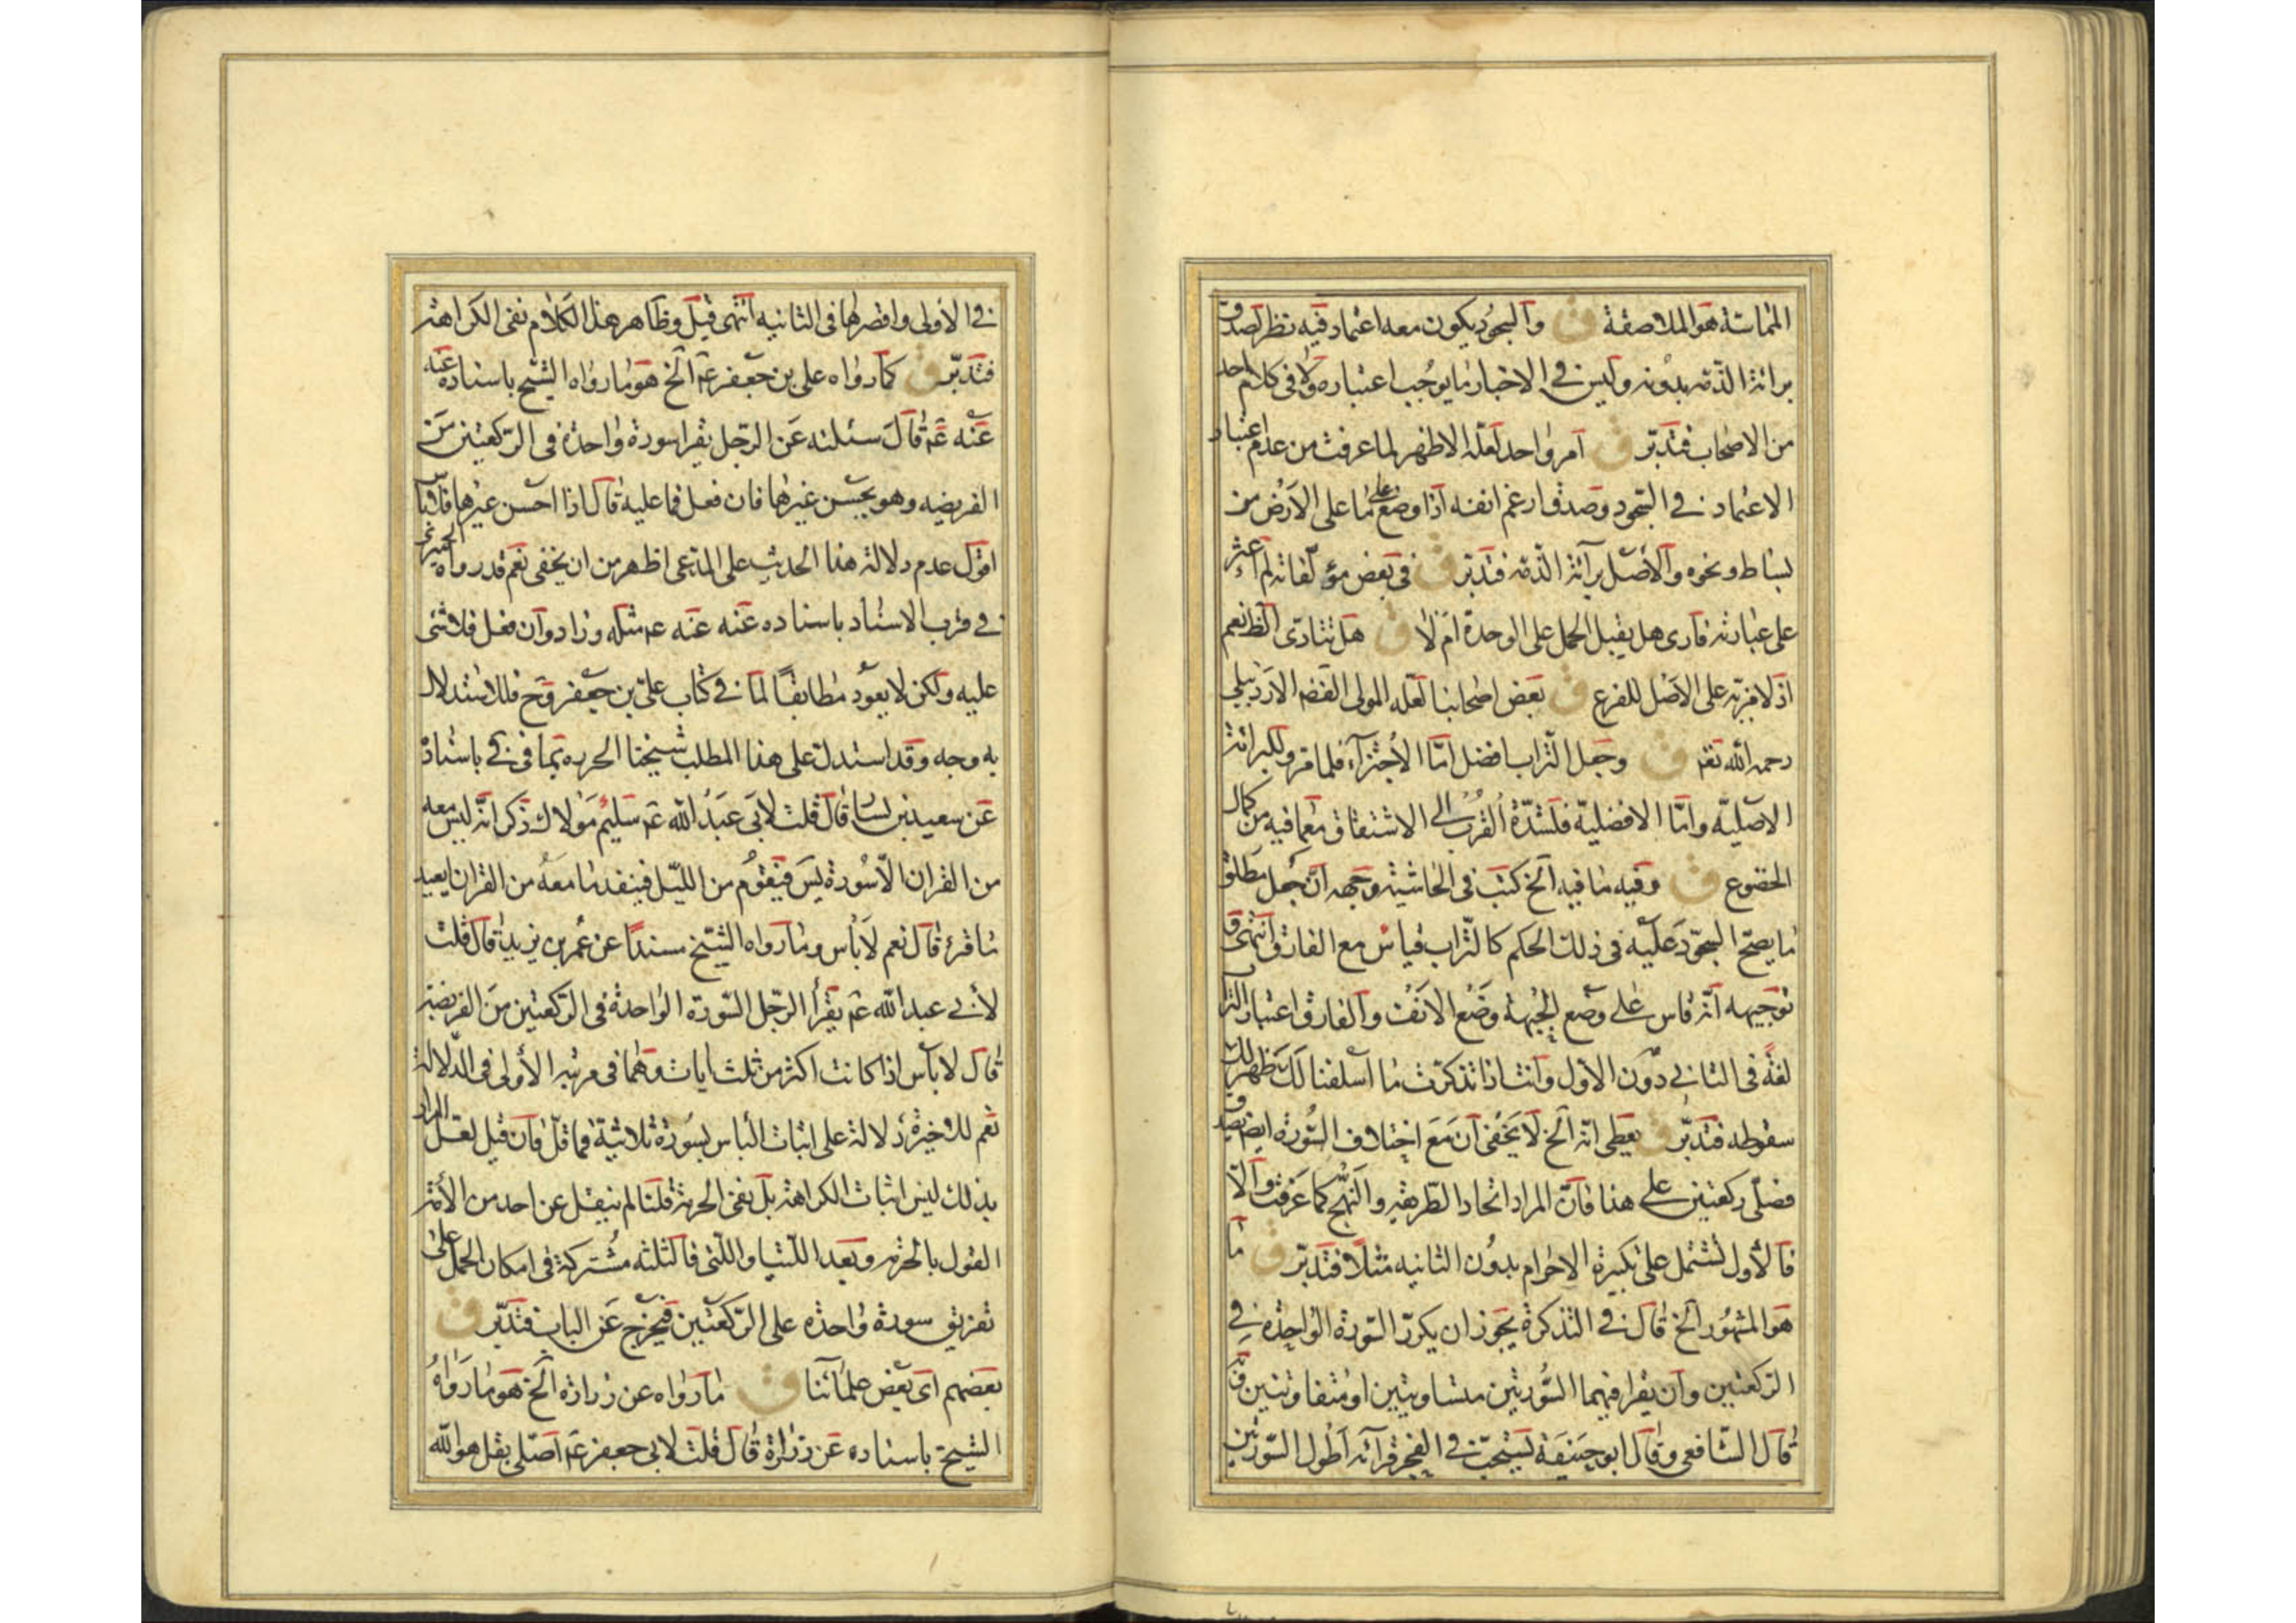 المماسة هو الملاصقة ق والسجود يكون معه اعتماد فيه نظر لصدق
برائة الذمة بدونه وليس في الاخبار ما يوجب اعتباره ولا في كلام احد
من الاصحاب فتدبر ق امر واحد لعله الاظهر لما عرفت من عدم اعتبار
الاعتماد في السجود وصدق ارغم انفه اذا وضع على ما على الارض من
بساط ونحوه والاصل برائة الذمة فتدبر ق في بعض مؤلفاته لم اعثر
على عبارته فارى هل يقبل الحمل على الوحدة ام لا ق هل تتادى الظ نعم
اذ لا مزية على الاصل للفرع ق بعض اصحابنا لعله المولى الاردبيلي
رحمه الله ق وجعل التراب افضل اما الاجتزاء فلما مر ولبرائة
الاصلية واما الافضلية فلشدة القرب الى مع ما فيه من كمال
الخضوع ق وفيه ما فيه الخ كتب في الحاشية وجهه ان جعل مطلق
ما يصح السجود عليه في ذلك الحكم كالتراب قياس مع الفارق انتهى
توجيهه انه قاس على وضع الجبهة وضع الانف والفارق اعتبار
لغة في الثاني دون الاول وانت اذا تذكرت ما اسلفنا لك يظهر لك
سقوطه فتدبر ق يعطى انه الخ لا يخفى ان مع اختلاف السورة ايضا يصدق
فصلى ركعتين على هذا فان المراد اتحاد الطريقة والنهج كما عرفت والا
فالاول تشتمل على تكبيرة الاحرام بدون الثانية مثلا فتدبر ق ما
هو المشهور الخ قال في التذكرة يجوز ان يكرر السورة الواحدة في
الركعتين وان يقرا فيهما السورتين متساويتين او متفاوتتين
قال الشافعي وقال ابو حنيفة يستحب في الفجر قرائة اطول السورتين
في الاولى واقصرها في الثانيه انتهى قيل وظاهر هذا الكلام نفى الكراهة
فتدبر ق كما رواه على بن جعفر عم الخ هو ما رواه الشيخ باسناده عنه
عنه عم قال سئلته عن الرجل يقرا سورة واحدة في الركعتين من
الفريضه وهو يحسن غيرها فان فعل فما عليه قال اذا احسن غيرها فلا
اقول عدم دلالة هذا الحديث على المدعى اظهر من ان يخفى نعم قد رواه الحميرى
في قرب الاسناد باسناده عنه عنه عم مثله وزاد وان فعل فلا شئ
عليه ولكن لا يعود مطابقا لما في كتاب على بن جعفر وح فللاستدلال
به وجه وقد استدل على هذا المطلب شيخنا الحر ره بما في باسناده
عن سعيد بن يسار قال قلت لابى عبد الله عم سليم مولاك ذكر انه ليس معه
من القران الا سورة يس فيقوم من الليل فينفد ما معه من القران ايعيد
ما قرئ قال نعم لا باس وما رواه الشيخ مسندا عن عمر بن يزيد قال قلت
لابي عبد الله عم يقرأ الرجل السورة الواحدة في الركعتين من الفريضة
قال لا باس اذا كانت اكثر من ثلث ايات وهما في مرتبة الاولى في الدلالة
نعم للاخيرة دلالة على اثبات الباس بسورة ثلاثية فما قل فان قيل لعل المراد
بذلك ليس اثبات الكراهة بل نفى الحرمة قلنا لم ينقل عن احد من الائمة
القول بالحرمة وبعد اللتيا واللتى فالثلثه مشتركة في امكان الحمل على
تفريق سورة واحده على الركعتين فيخرج عن الباب فتدبر ق
بعضهم اى بعض علمائنا ق ما رواه عن زرارة الخ هو ما رواه
الشيخ باسناده عن زرارة قال قلت لابى جعفر عم اصلى بقل هو الله